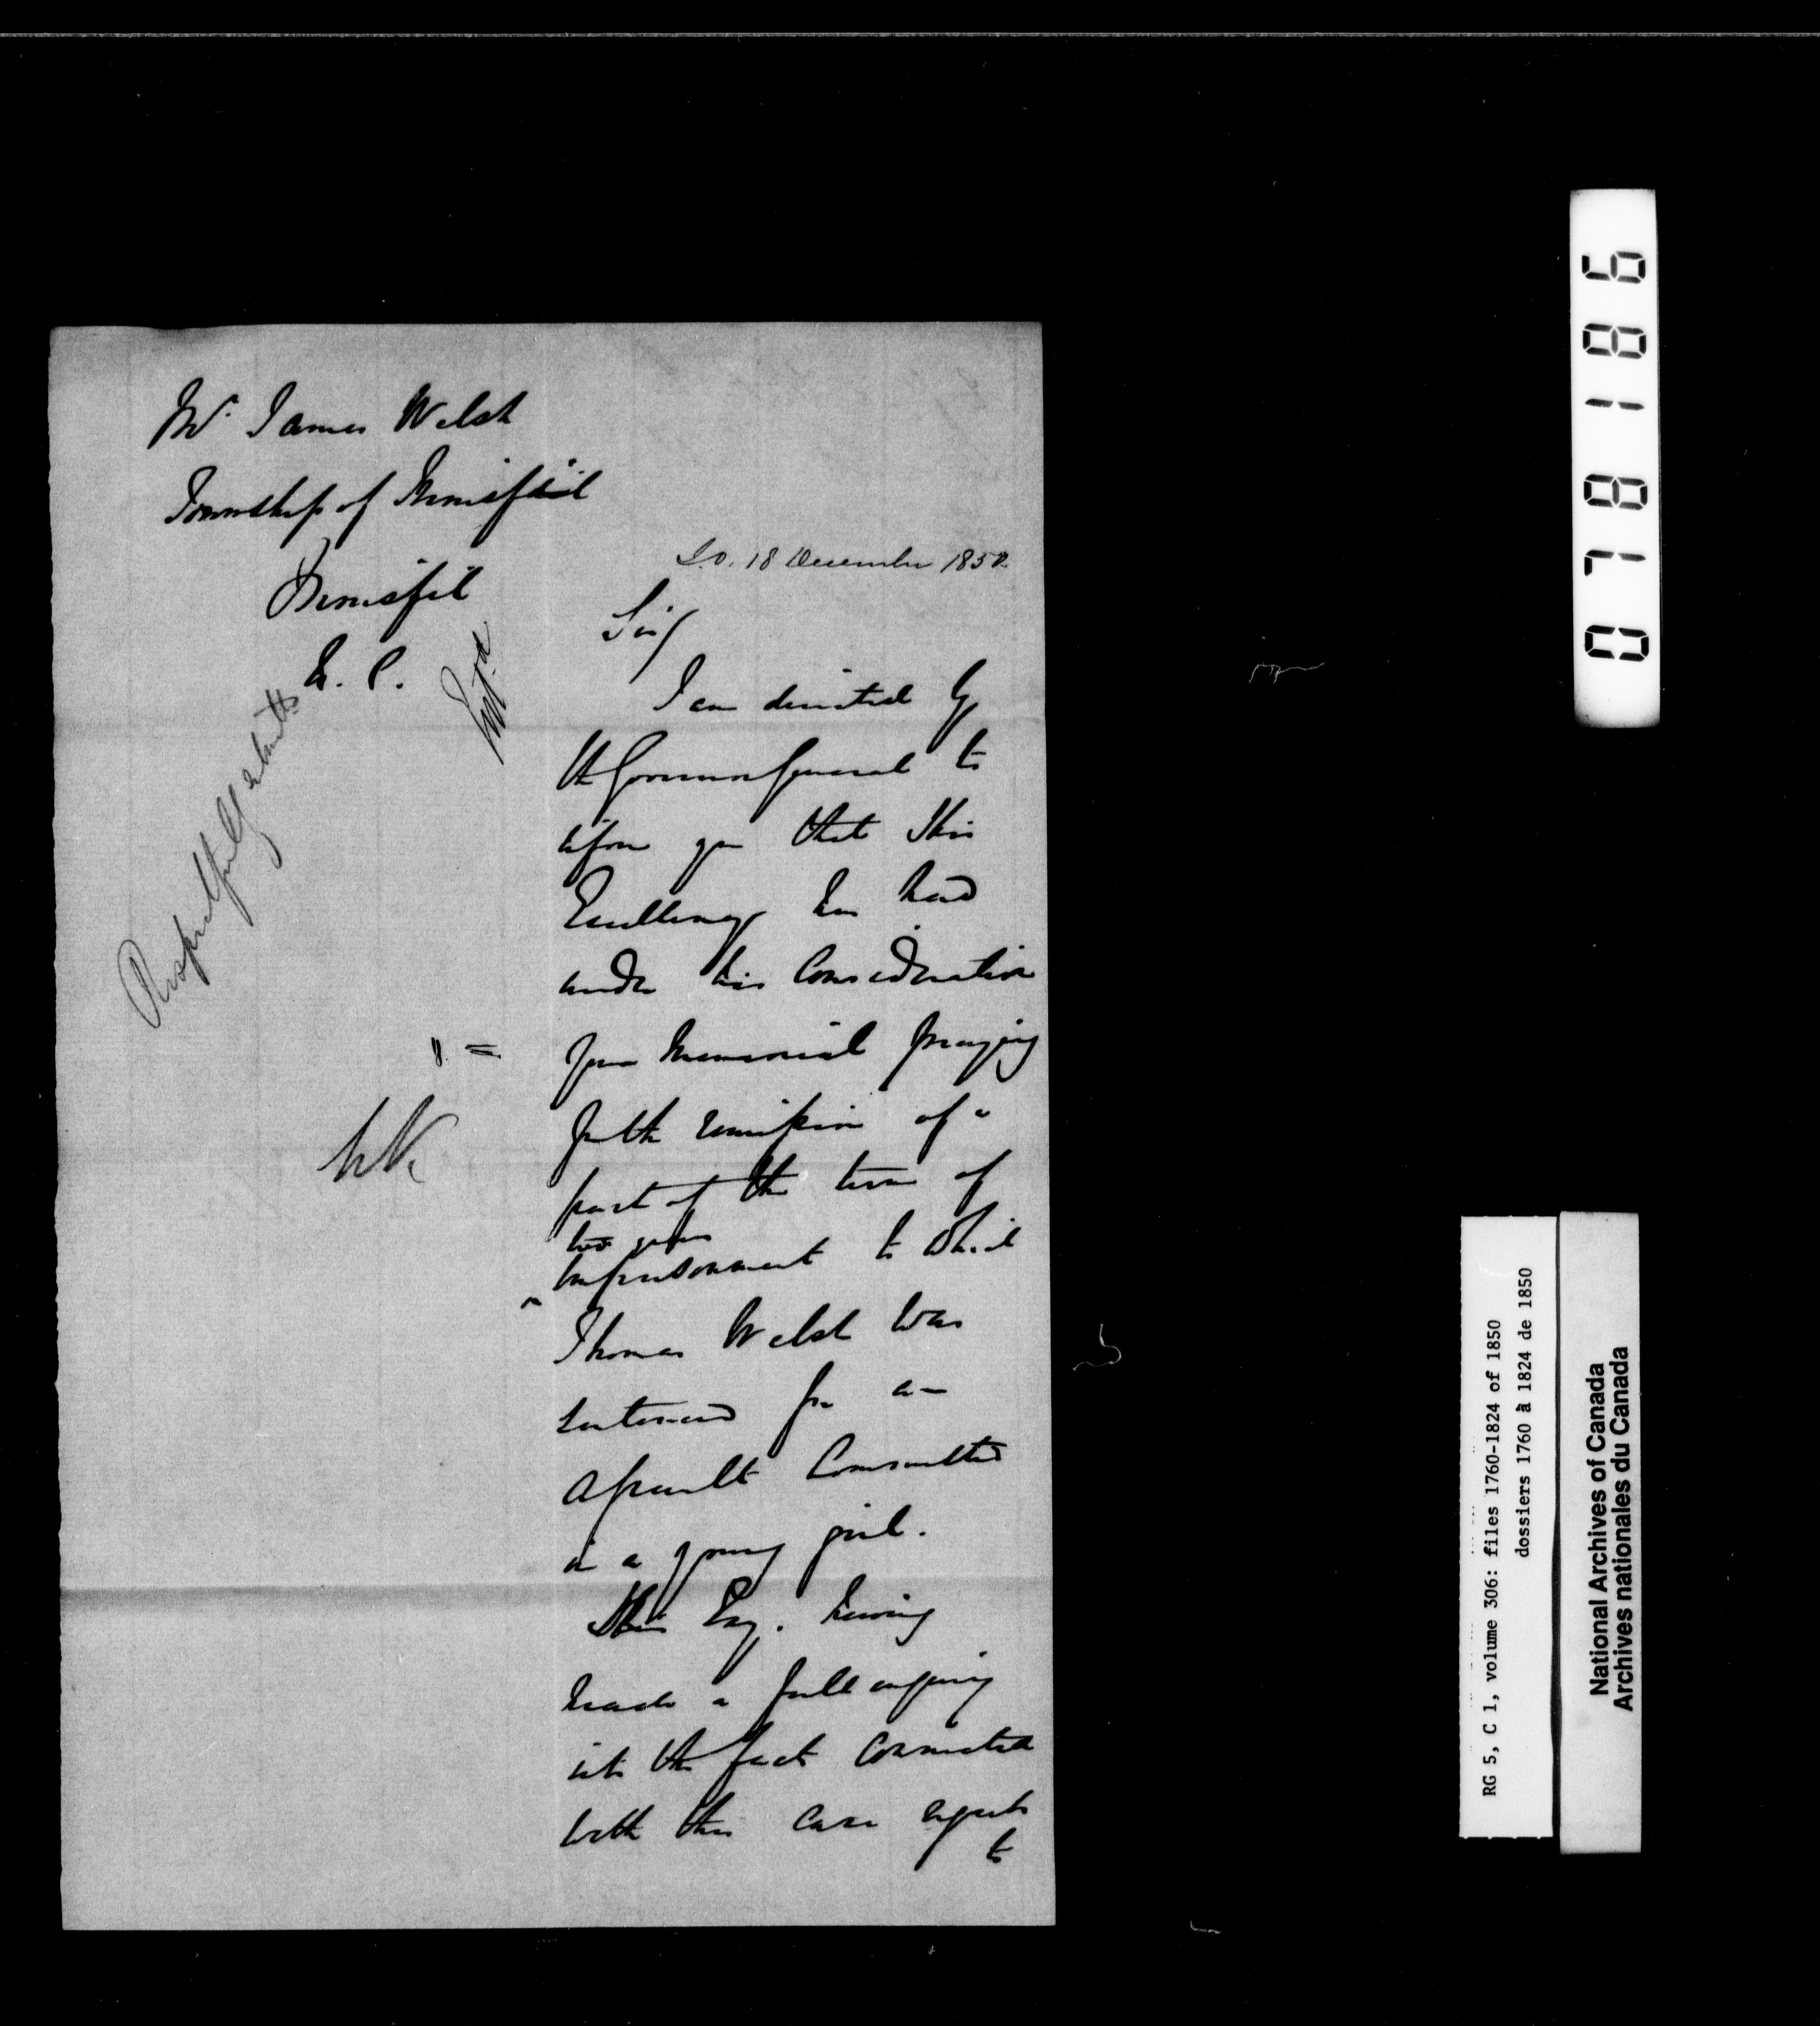 Mr. James Welsh
Township of Innisfil
Innisfil
S.O. 18 December 1850.
Entd
Sir/
I am directed by
the Governor General to
inform you that His
Excellency has had
under his Consideration
Your Memorial praying
for the remission of a
part of the term of
two years
imprisonment to which
Thomas Welsh was
sentenced for an
assault Committed
on a young girl.
His Exy. having
made a full enquiry
into the facts Connected
with this Case regrets
to
Respectfully submitted
0781186
RG 5, C 1, volume 306: files 1760-1824 of 1850
dossiers 1760 à 1824 de 1850
National Archives of Canada
Archives nationales du Canada